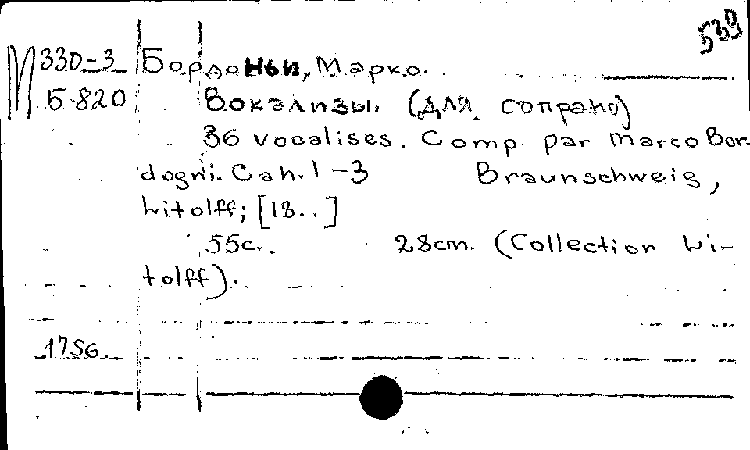 539
М 330-3 Бордоньи, Марко.
Б-820 Вокализы. (для сопрано)
36 vocalises. Comp. par Marco Bor-
dogni. Cah. 1-3 Braunschweig,
Litolff; [18..]
55c. 28cm. (Collection Li-
tolff).
1756